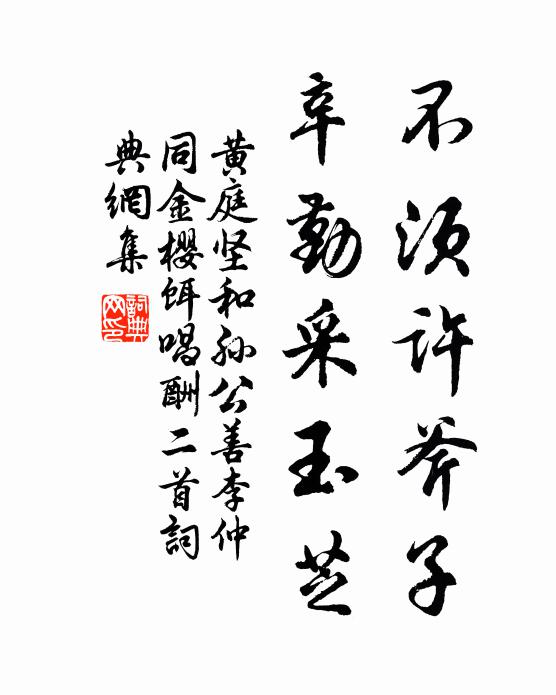 不须许斧子
辛勤采玉芝
黄庭坚和孙公善李仲
同金樱饵唱酬二首詞
典網集
詞典网印